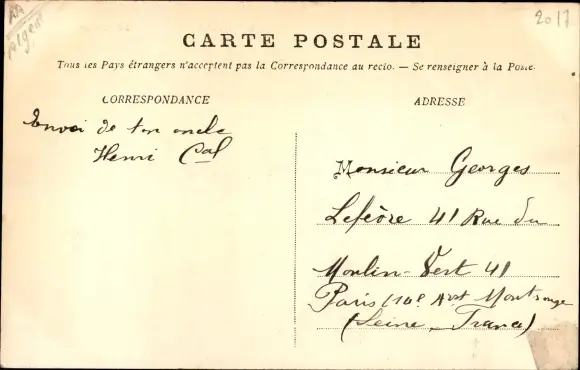 AA
Alger
2017
CARTE POSTALE
Tous les Pays étrangers n'acceptent pas la Correspondance au recto. — Se renseigner à la Poste.
CORRESPONDANCE
Envoi de ton oncle
Henri Cal
ADRESSE
Monsieur Georges
Lefèvre 41 Rue du
Moulin-Vert 41
Paris (14e Arrt Montrouge
(Seine, France)